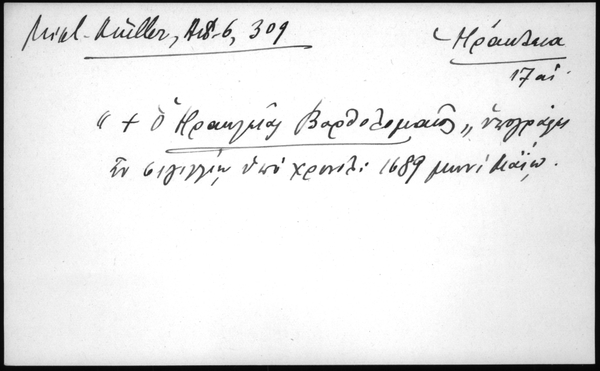 Mikl.-Müller, Αct-6, 309
Ηράκλεια
17 αἰ.
"† ὁ Ηρακλείας Βαρθολομαῖος" ὑπογράφει
ἐν σιγιλλίῳ ὑπό χρονολ: 1689 μηνί Μαΐῳ.